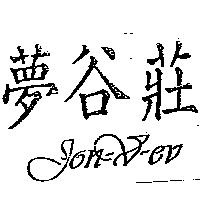 夢谷莊
Jon-V-ev